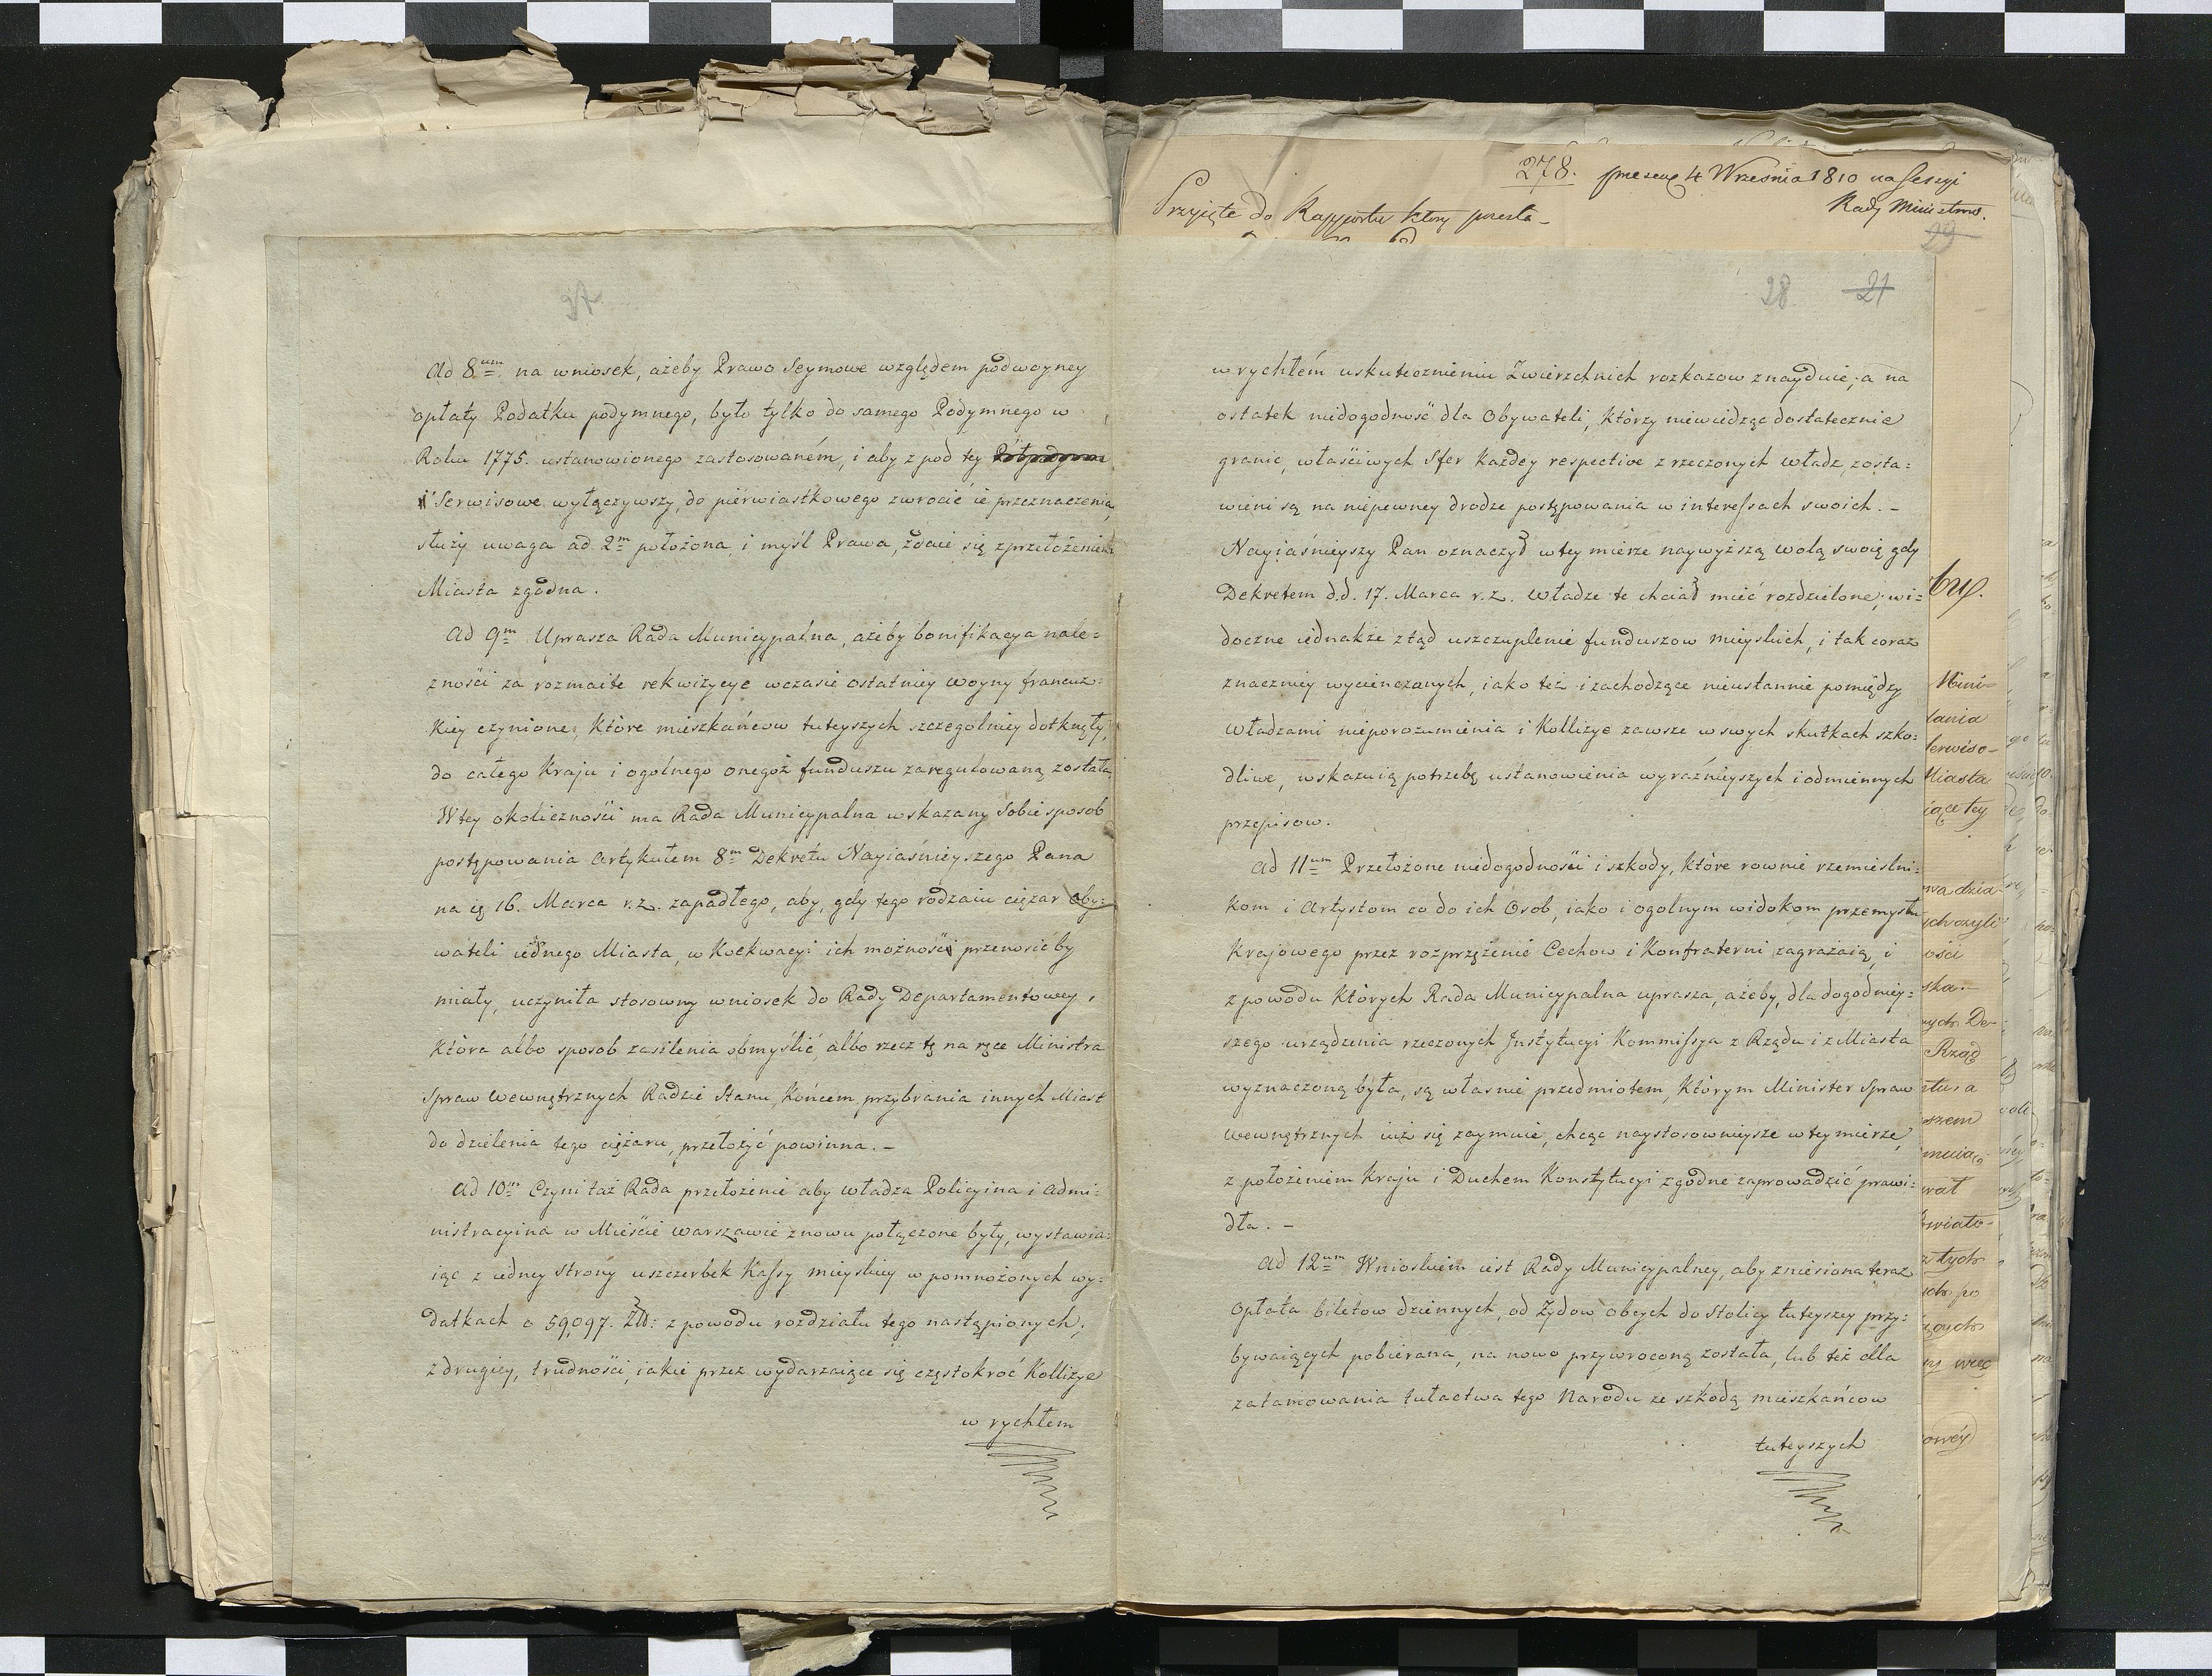 37
Ad 8um na wniosek, ażeby Prawo Seymowe względem podwoyney
opłaty Podatku podymnego, było tylko do samego Podymnego w
Roku 1775. ustanowionego zastosowaném, i aby z pod tey
i Serwisowe wyłączywszy, do pierwiastkowego zwrocić ie przeznaczenia,
służy uwaga ad 2m położona, i myśl Prawa, zdaie się z przełożeniem
Miasta zgodna.
Ad 9m Uprasza Rada Municypalna, ażeby bonifikacya nale=
zności za rozmaite rekwizycye w czasie ostatniey woyny francuz=
kiey czynione, które mieszkańcow tuteyszych szczegolniey dotknęły,
do całego Kraju i ogolnego onegoż funduszu zaregulowaną została.
W tey okoliczności ma Rada Municypalna wskazany sobie sposob
postępowania Artykułem 8m Dekretu Nayiaśnieyszego Pana
na dn 16. Marca r.z. zapadłego, aby, gdy tego rodzaiu ciężar Oby=
wateli iednego Miasta, w Koekwacyi ich możności przenosić by
miały, uczyniła stosowny wniosek do Rady Departamentowey,
która albo sposob zasilenia obmyślić, albo rzecz tę na ręce Ministra
Spraw Wewnętrznych Radzie Stanu, końcem przybrania innych Miast
do dzielenia tego ciężaru, przełożyć powinna. –
Ad 10m Czyni taż Rada przełożenie aby władza Policyina i Admi=
nistracyina w Mieście Warszawie znowu połączone były, wystawia=
iąc z iedney strony uszczerbek Kassy mieyskiey w pomnożonych wy=
datkach o 59,097. Złł: z powodu rozdziału tego nastąpionych;
z drugiey, trudności, iakie przez wydarzaiące się częstokroć Kollizye
w rychłem
278. 4 Września 1810 na Sessyi
Rady Ministrow.
Przyięte do Rapportu który przesła–
29
28 21
w rychłém uskutecznieniu Zwierzchnich rozkazow znayduie; a na
ostatek niedogodność dla Obywateli, którzy niewiedząc dostatecznie
granic, właściwych Sfer każdey respective z rzeczonych władz, zosta=
wieni są na niepewney drodze postępowania w interessach swoich. –
Nayiaśnieyszy Pan oznaczył w tey mierze naywyższą wolą swoię gdy
Dekretem d.d. 17. Marca r.z. Władze te chciał mieć rozdzielone; wi=
doczne iednakże ztąd uszczuplenie funduszow mieyskich, i tak coraz
znaczniey wycienczanych, iako też i zachodzące nieustannie pomiędzy
Władzami nieporozumienia i Kollizye zawsze w swych skutkach szko=
dliwe, wskazuią potrzebę ustanowienia wyraźnieyszych i odmiennych
przepisow.
Ad 11um Przełożone niedogodności i szkody, które rownie rzemieślni=
kom i Artystom co do ich Osob, iako i ogolnym widokom przemysłu
Krajowego przez rozprzężenie Cechow i Konfraterni zagrażaią, i
z powodu których Rada Municypalna uprasza, ażeby, dla dogodniey=
szego urządzenia rzeczonych Instytucyi Kommissya z Rządu i z Miasta
wyznaczoną była, są własnie przedmiotem, którym Minister Spraw
Wewnętrznych iuż się zaymuie, chcąc naystosownieysze w tey mierze,
z położeniem Kraju i Duchem Konstytucyi zgodne zaprowadzić prawi=
dła. –
Ad 12um Wnioskiem iest Rady Municypalney, aby zniesiona teraz
Opłata biletow dziennych, od Żydow obcych do Stolicy tuteyszey przy=
bywaiących pobierana, na nowo przywroconą została, lub też dla
zatamowania tułactwa tego Narodu ze szkodą mieszkańcow
tuteyszych